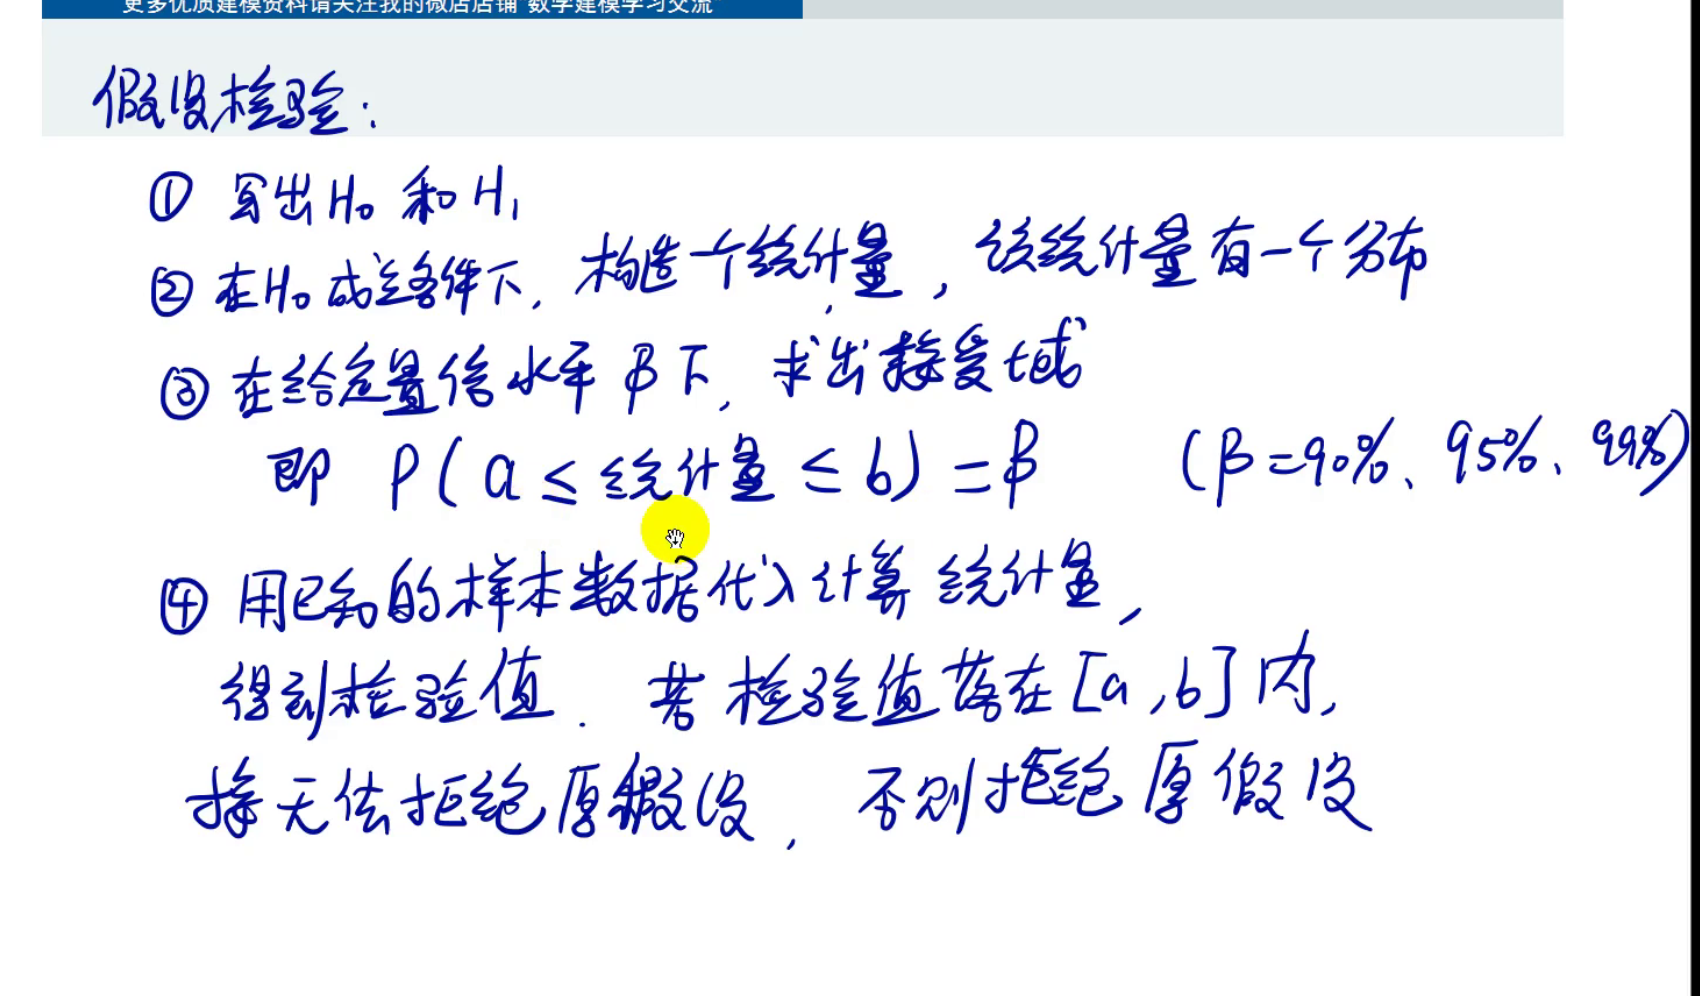 更多优质建模资料请关注我的微店店铺“数学建模学习交流”
假设检验：
① 写出H₀ 和 H₁
② 在H₀ 成立条件下，构造一个统计量，该统计量有一个分布
③ 在给定置信水平 β 下，求出接受域
即 P(a ≤ 统计量 ≤ b) = β (β=90%、95%、99%)
④ 用已知的样本数据代入计算统计量，
得到检验值. 若检验值落在[a,b]内，
无法拒绝原假设，否则拒绝原假设